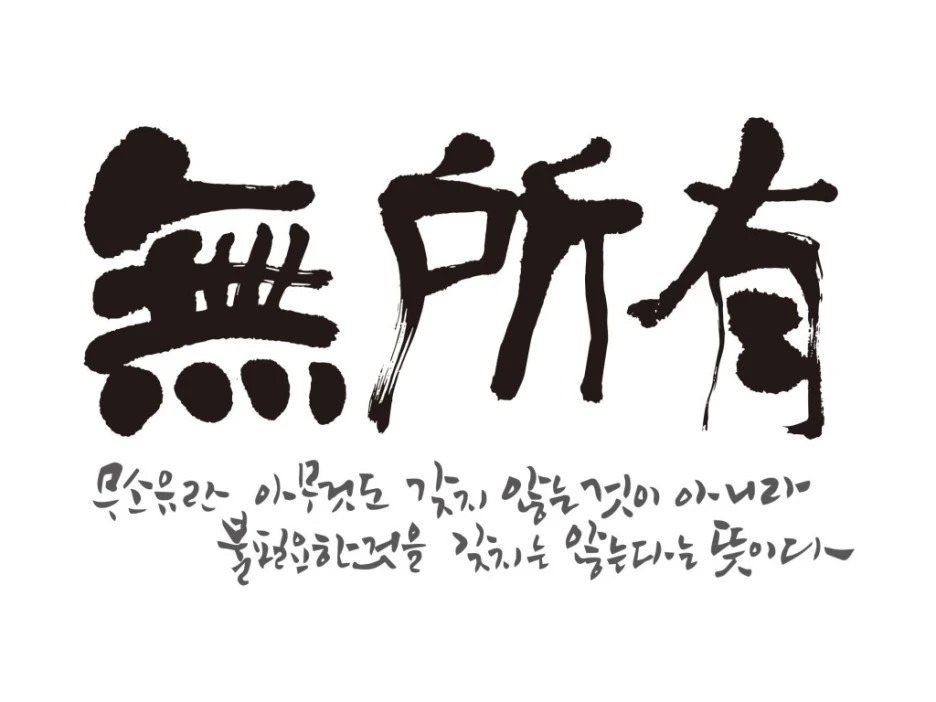 無所有
무소유란 아무것도 갖지 않는것이 아니라
불필요한것을 갖지는 않는다는 뜻이다